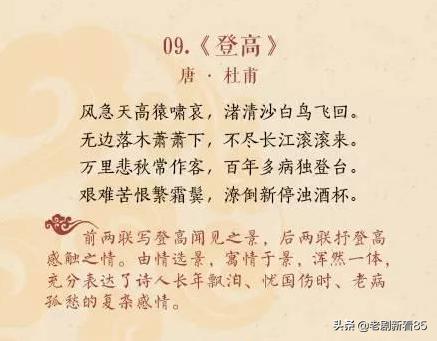 09.《登高》
唐 · 杜甫
风急天高猿啸哀，渚清沙白鸟飞回。
无边落木萧萧下，不尽长江滚滚来。
万里悲秋常作客，百年多病独登台。
艰难苦恨繁霜鬓，潦倒新停浊酒杯。
前两联写登高闻见之景，后两联抒登高
感触之情。由情选景，寓情于景，浑然一体，
充分表达了诗人长年飘泊、忧国伤时、老病
孤愁的复杂感情。
头条 @老剧新看85